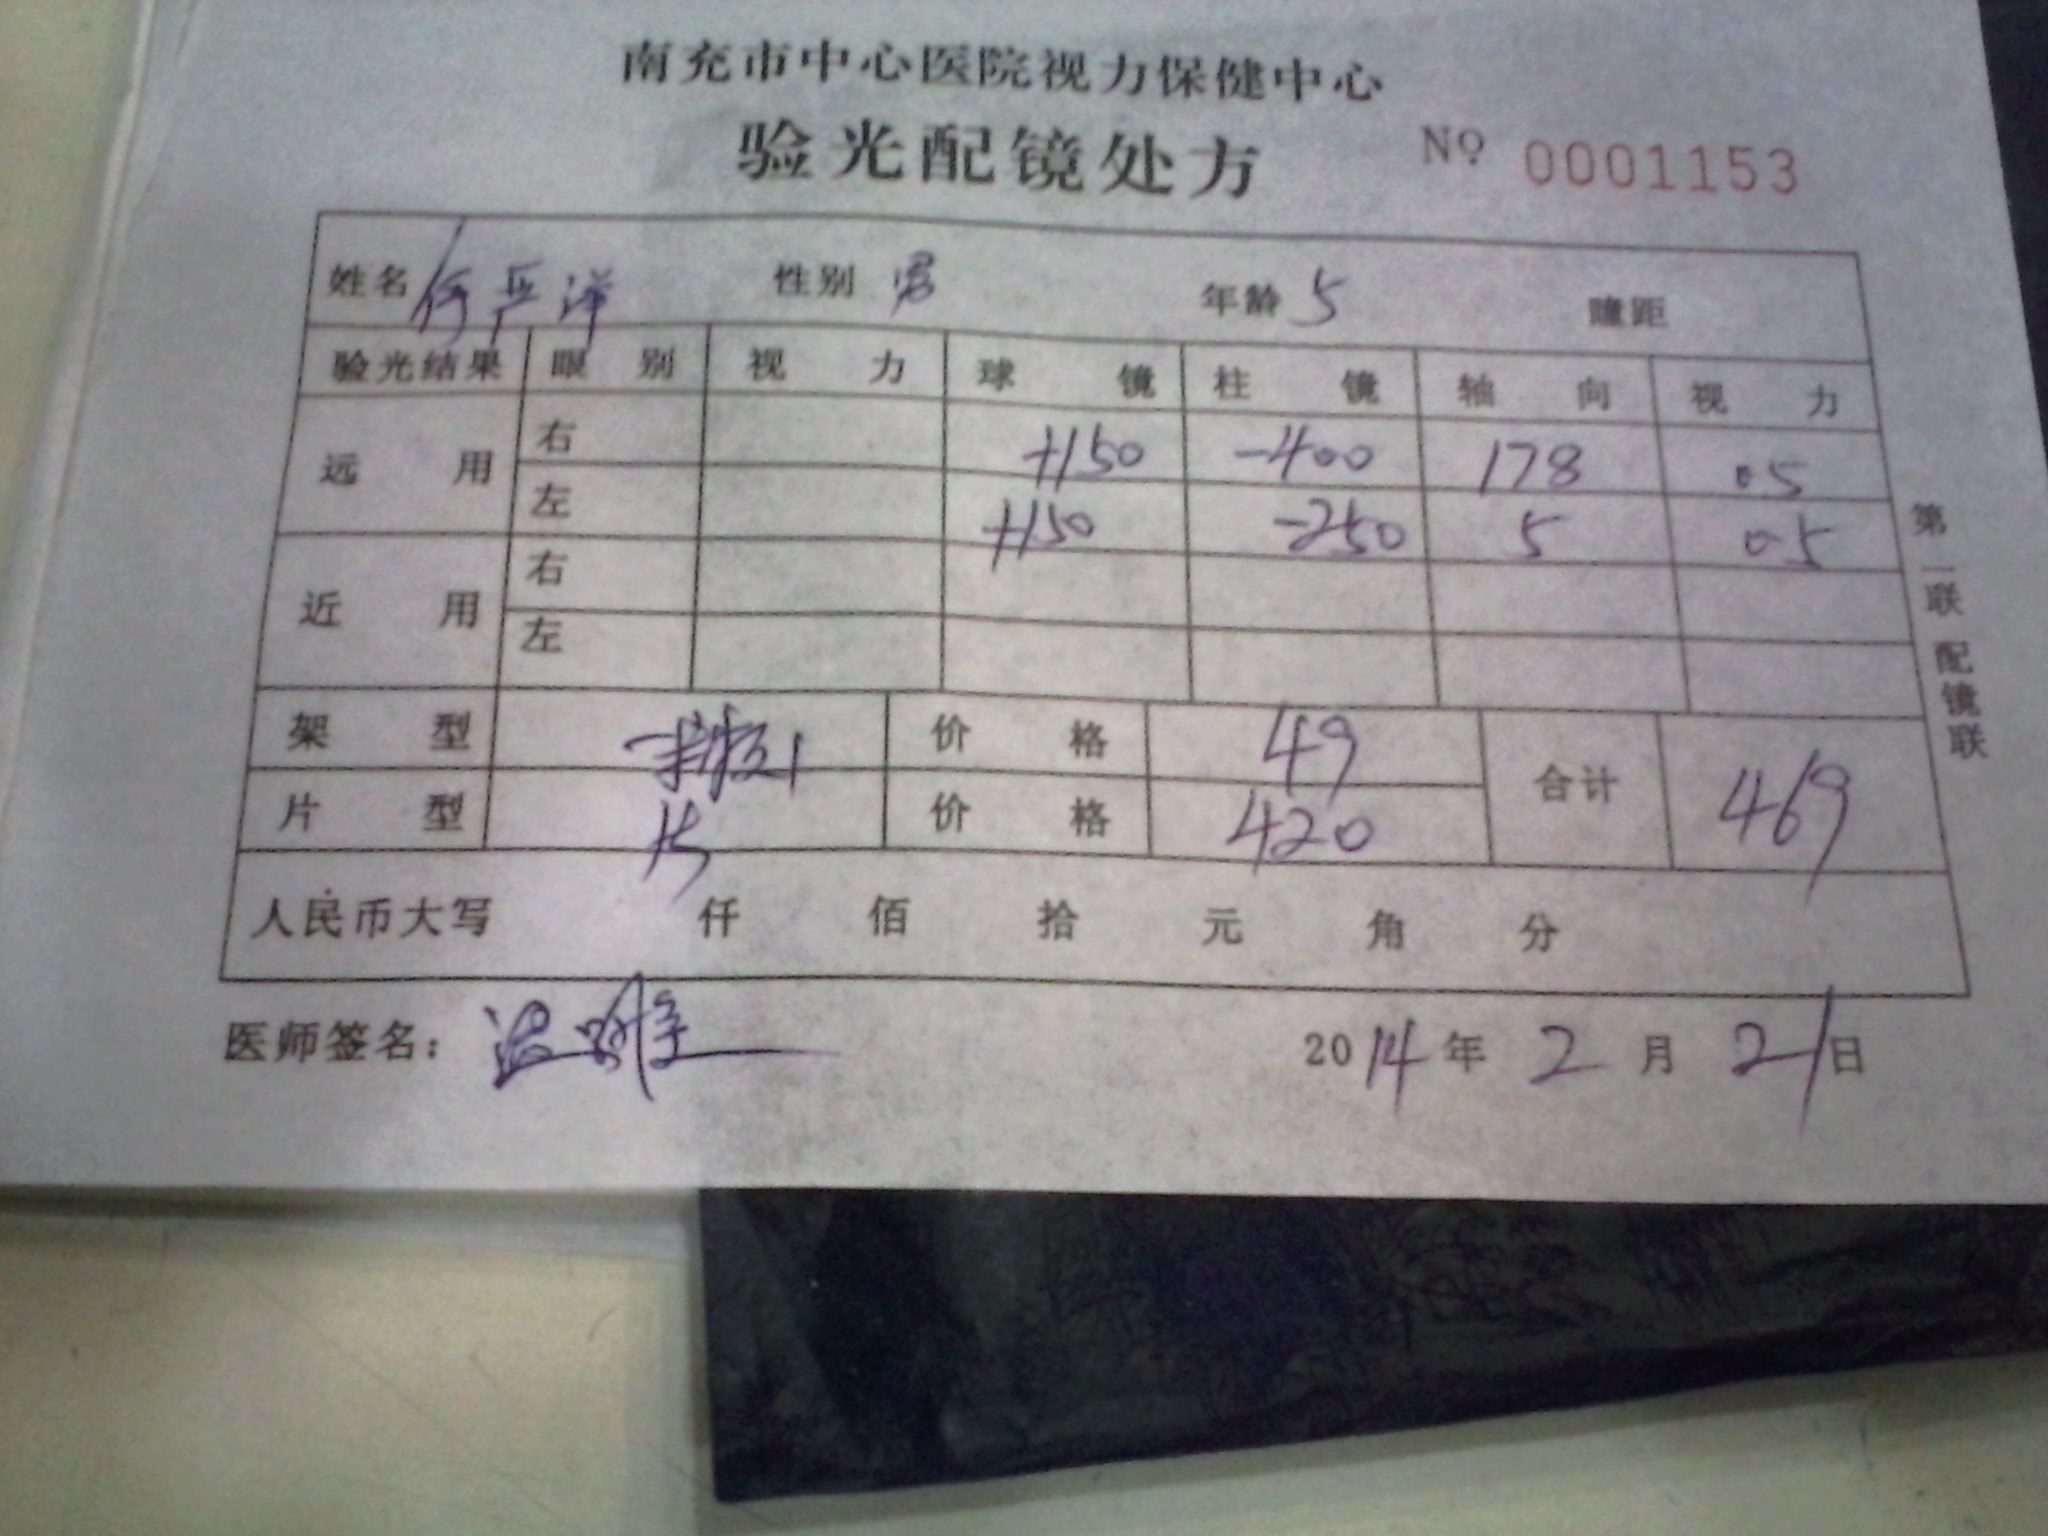 南充市中心医院视力保健中心
验光配镜处方 No 0001153
姓名 何严洋 性别 男 年龄 5 瞳距
验光结果 眼别 视力 球镜 柱镜 轴向 视力
远用 右 +150 -400 178 0.5
左 +150 -250 5 0.5
近用 右
左
架型 价格 49 合计 469
片型 价格 420
人民币大写 仟 佰 拾 元 角 分
医师签名: 2014年 2月 21日
第一联 配镜联